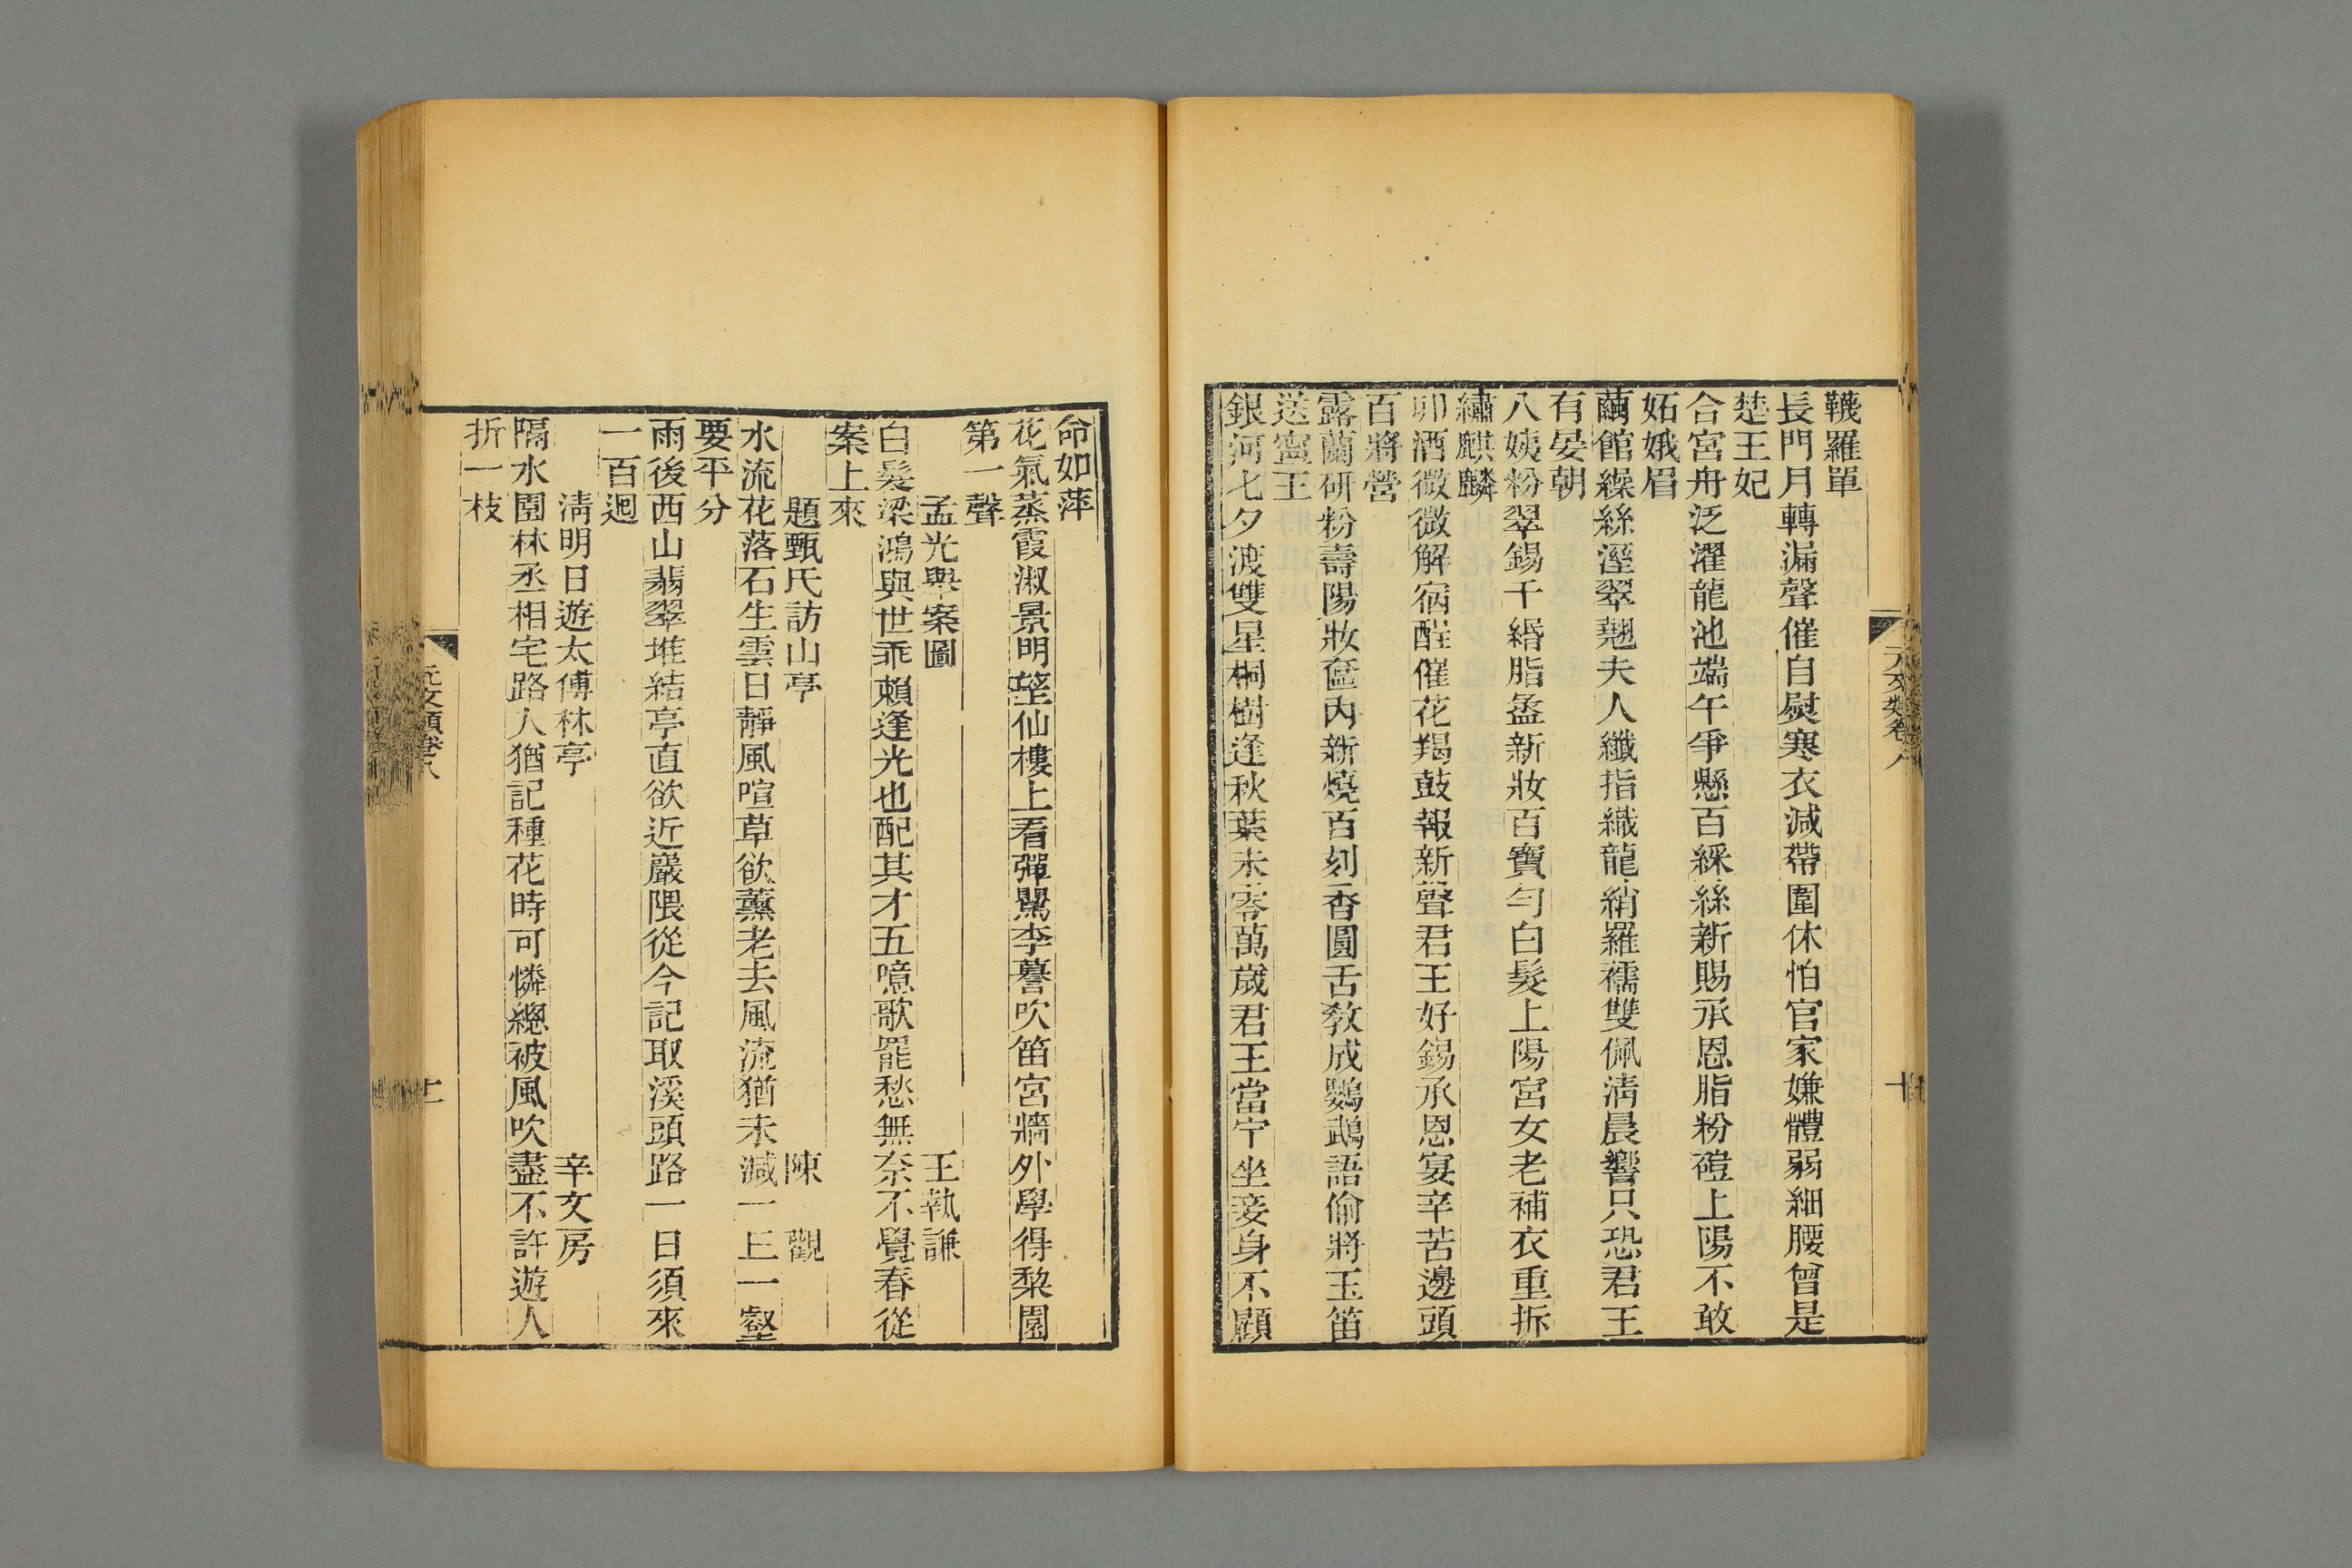 韈羅單
長門月轉漏聲催自熨寒衣減帶圍休怕官家嫌體弱細腰曾是
楚王妃
合宮舟泛濯龍池端午爭懸百綵絲新賜承恩脂粉磑上陽不敢
妬娥眉
繭館繰絲溼翠翹夫人纖指織龍綃羅襦雙佩清晨響只恐君王
有晏朝
八姨粉翠錫千緡脂盝新妝百寶勻白髮上陽宮女老補衣重拆
繡麒麟
卯酒微微解宿酲催花羯鼓報新聲君王好錫承恩宴辛苦邊頭
百將營
露蘭研粉壽陽妝奩內新燒百刻香圓舌教成鸚鵡語偷將玉笛
送寧王
銀河七夕渡雙星桐樹逢秋葉未零萬歲君王當宁坐妾身不願
元文類卷八
十
命如萍
花氣蒸霞淑景明望仙樓上看彈鶯李謩吹笛宮牆外學得黎園
第一聲
孟光舉案圖 王執謙
白髮梁鴻與世乖賴逢光也配其才五噫歌罷愁無奈不覺春從
案上來
題甄氏訪山亭 陳觀
水流花落石生雲日靜風喧草欲薰老去風流猶未減一丘一壑
要平分
雨後西山翡翠堆結亭直欲近巖隈從今記取溪頭路一日須來
一百迴
清明日遊太傅林亭 辛文房
隔水園林丞相宅路人猶記種花時可憐總被風吹盡不許遊人
折一枝
元文類卷八